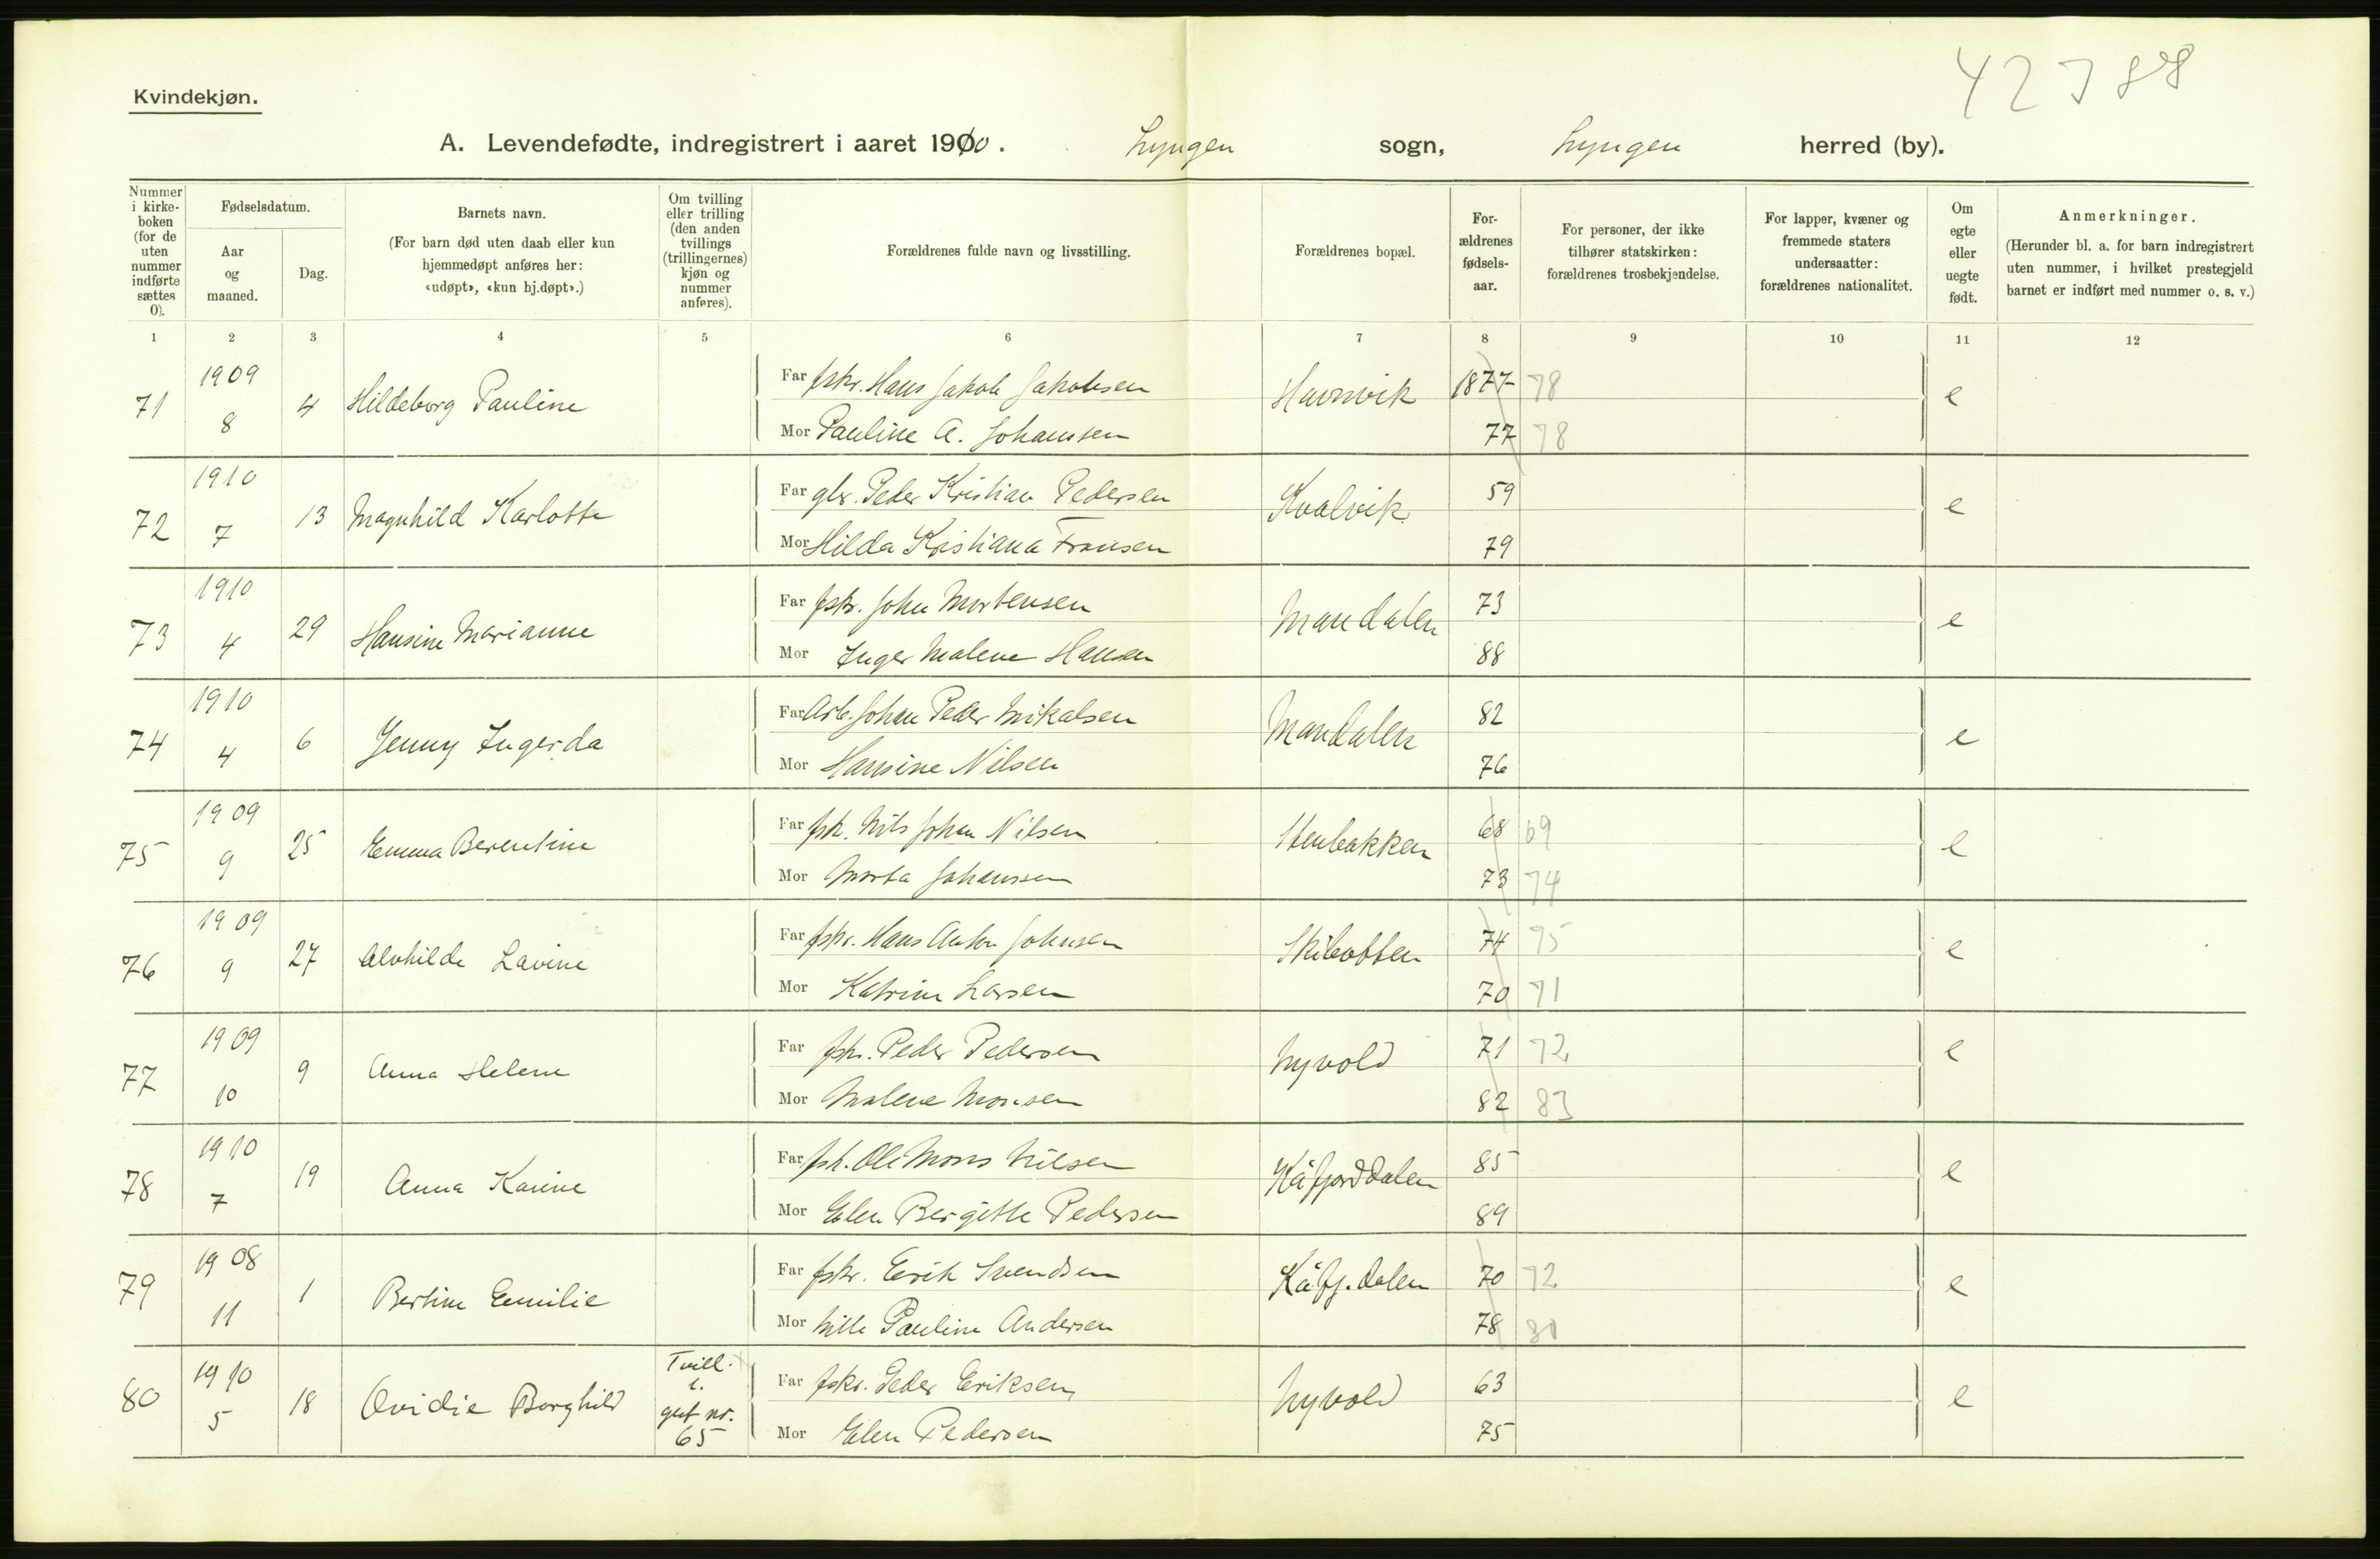 42788
Kvindekjøn.
A. Levendefødte, indregistrert i aaret 1910. Lyngen sogn, Lyngen herred (by).
Nummer i kirke-boken (for de uten nummer indførte sættes 0).
Fødselsdatum.
Aar og maaned.
Dag.
Barnets navn.
(For barn død uten daab eller kun hjemmedøpt anføres her: «udøpt», «kun hj.døpt».)
Om tvilling eller trilling (den anden tvillings (trillingernes) kjøn og nummer anføres).
Forældrenes fulde navn og livsstilling.
Forældrenes bopæl.
For-ældrenes fødsels-aar.
For personer, der ikke tilhører statskirken: forældrenes trosbekjendelse.
For lapper, kvæner og fremmede staters undersaatter: forældrenes nationalitet.
Om egte eller uegte født.
Anmerkninger.
(Herunder bl. a. for barn indregistrert uten nummer, i hvilket prestegjeld barnet er indført med nummer o. s. v.)
1 2 3 4 5 6 7 8 9 10 11 12
71 1909 8 4 Hildeborg Pauline Far fskr. Hans Jakob Jakobsen Havnvik 1877 78 e
Mor Pauline A. Johansen 77 78
72 1910 7 13 Magnhild Karlotte Far gbr. Peder Kristian Pedersen Kvalvik 59 e
Mor Hilda Kristiana Fransen 79
73 1910 4 29 Hansine Marianne Far fskr. John Mortensen Mandalen 73 e
Mor Inger Malene Hansen 88
74 1910 4 6 Jenny Ingerda Far Arb. Johan Peder Mikalsen Mandalen 82 e
Mor Hansine Nilsen 76
75 1909 9 25 Emma Berentine Far fsk. Nils Johan Nilsen Stenbakken 68 69 e
Mor Marta Johanssen 73 74
76 1909 9 27 Alvhilde Lavine Far fskr. Hans Anton Johnsen Skibotten 74 75 e
Mor Katrine Larsen 70 71
77 1909 10 9 Anna Helene Far fskr. Peder Pedersen Nyvold 71 72 e
Mor Malene Monsen 82 83
78 1910 7 19 Anna Karine Far fsk. Ole Mons Nilsen Kåfjorddalen 85 e
Mor Elen Bergitte Pedersen 89
79 1908 11 1 Bertine Emilie Far fskr. Erik Svendsen Kåfj.dalen 70 72 e
Mor Nille Pauline Andersen 78 80
80 1910 5 18 Ovidie Borghild Tvill. t. gut nr. 65 Far fskr. Peder Eriksen Nyvold 63 e
Mor Elen Pedersen 75